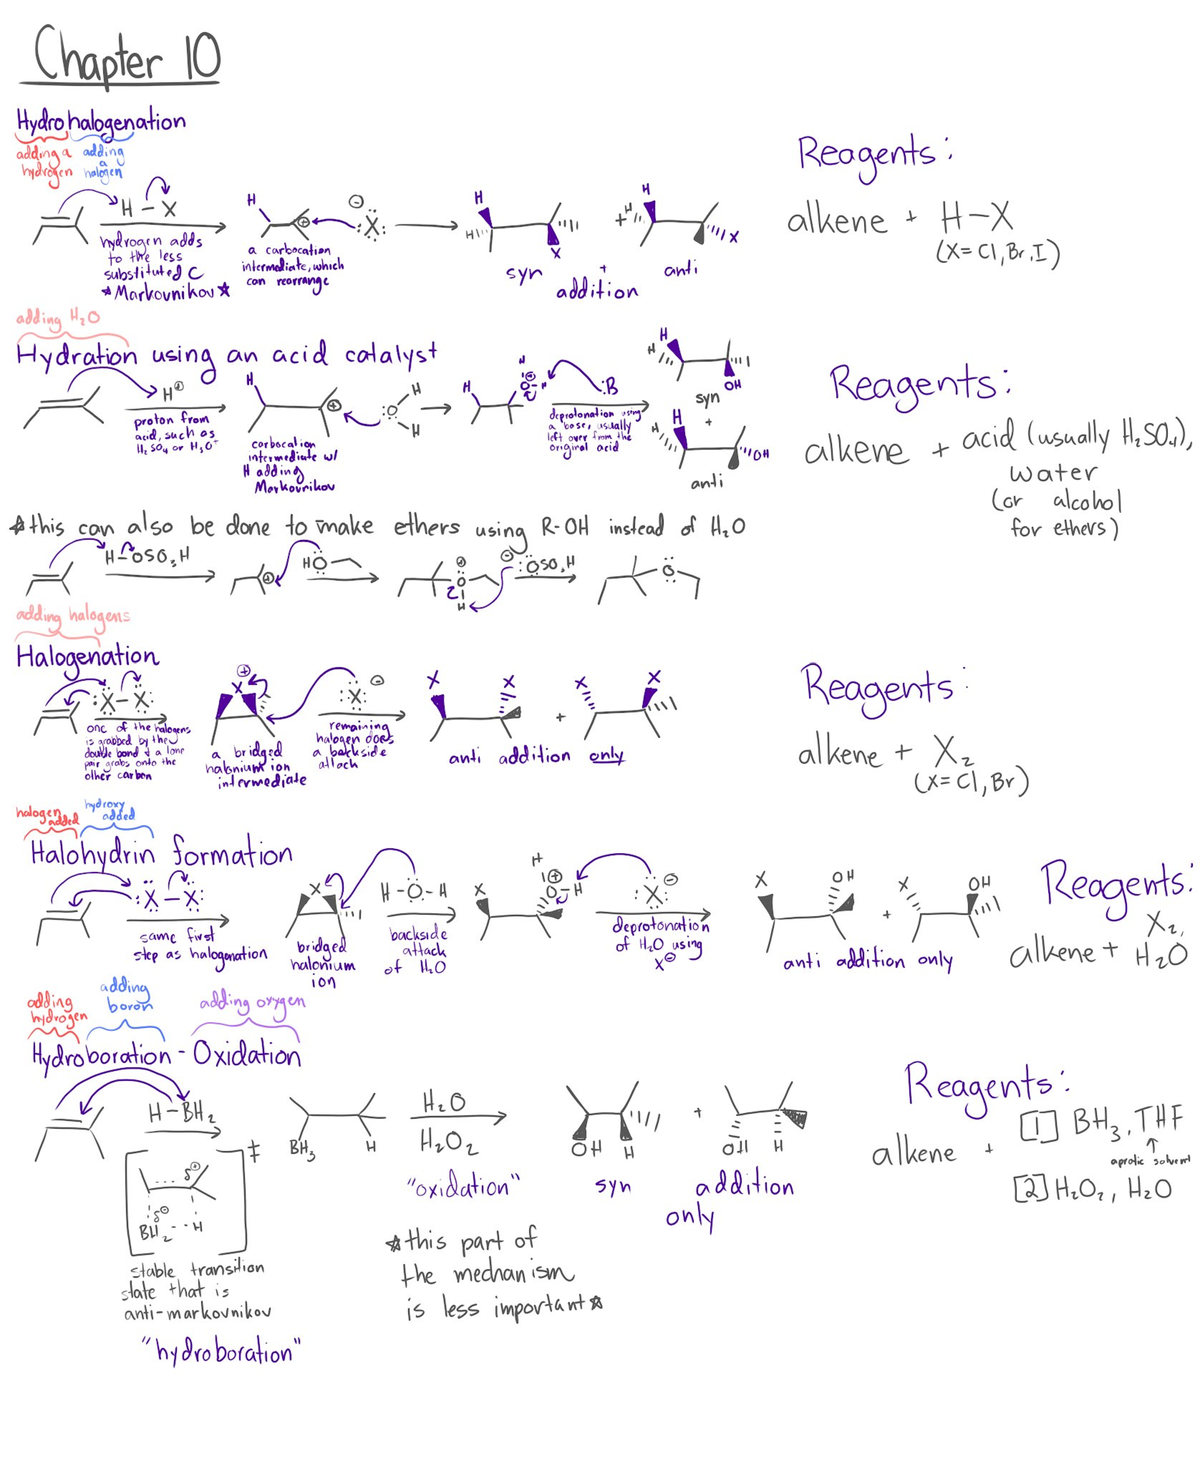 Chapter 10
Hydrohalogenation
adding a hydrogen
adding a halogen
H - X
hydrogen adds
to the less
substituted C
☆Markovnikov☆
H
⊕
a carbocation
intermediate, which
can rearrange
⊖
:X:
H
H
X
syn
+
H
H
X
anti
+
addition
Reagents:
alkene + H-X
(X= Cl, Br, I)
adding H₂O
Hydration using an acid catalyst
H⊕
proton from
acid, such as
H₂SO₄ or H₃O⁺
H
⊕
carbocation
intermediate w/
H adding
Markovnikov
H
:O:
H
H
H
⊕
O-H
:B
deprotonation using
a base, usually
left over from the
original acid
H
H
OH
syn
+
H
H
OH
anti
Reagents:
alkene + acid (usually H₂SO₄),
water
(or alcohol
for ethers)
☆this can also be done to make ethers using R-OH instead of H₂O
H-OSO₃H
⊕
HO
⊕
O
H
⊖
:OSO₃H
O
adding halogens
Halogenation
:X-X:
one of the halogens
is grabbed by the
double bond & a lone
pair grabs onto the
other carbon
⊕
X
a bridged
halonium ion
intermediate
:X: ⊖
remaining
halogen does
a backside
attack
X
X
+
X
X
anti addition only
Reagents:
alkene + X₂
(X= Cl, Br)
halogen added
hydroxy added
Halohydrin formation
:X-X:
same first
step as halogenation
X
bridged
halonium
ion
H-O-H
backside
attack
of H₂O
X
H
⊕
O-H
:X: ⊖
deprotonation
of H₂O using
X⊖
X
OH
+
X
OH
anti addition only
Reagents:
X₂,
alkene + H₂O
adding hydrogen
adding boron
adding oxygen
Hydroboration - Oxidation
H-BH₂
‡
BH₂
H
stable transition
state that is
anti-markovnikov
"hydroboration"
BH₃
H
H₂O
H₂O₂
"oxidation"
☆this part of
the mechanism
is less important☆
OH
H
+
OH
H
syn addition
only
Reagents:
alkene + [1] BH₃, THF
↑
aprotic solvent
[2] H₂O₂, H₂O